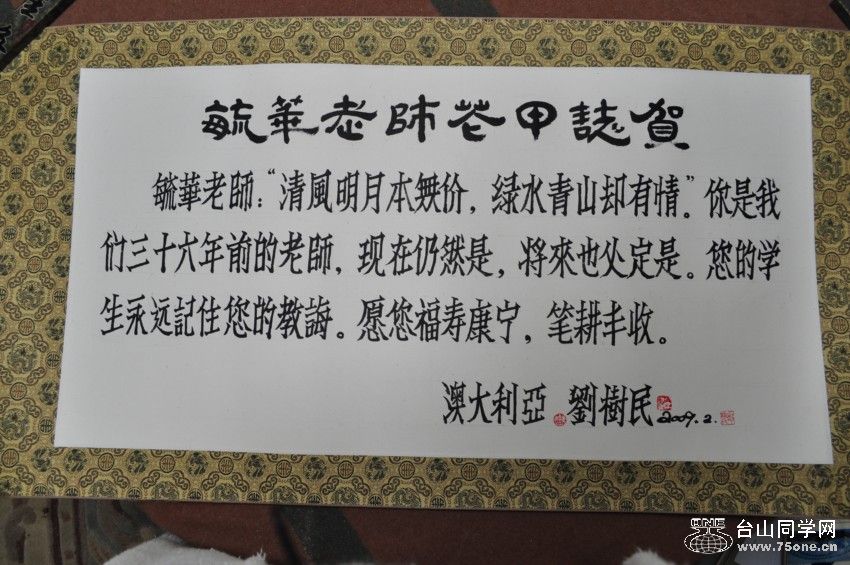 毓華老師花甲誌賀
毓華老師：“清風明月本無份，绿水青山却有情”。你是我
们三十六年前的老師，现在仍然是，将來也必定是。您的学
生永远記住您的教誨。愿您福寿康宁，笔耕丰收。
澳大利亞 劉樹民 2009.2.
ONE 台山同学网
www.75one.cn